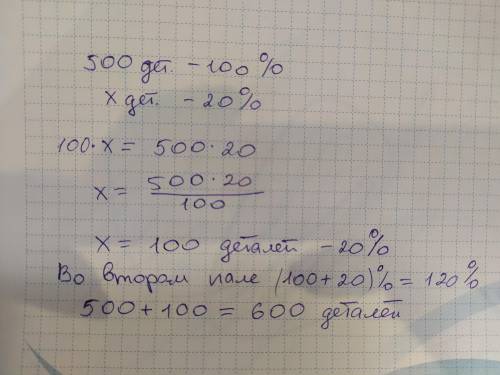 500 дет. - 100 %
x дет. - 20%
100 · x = 500 · 20
x = 500 · 20 / 100
x = 100 деталей - 20%
Во втором пале (100 + 20)% = 120%
500 + 100 = 600 деталей